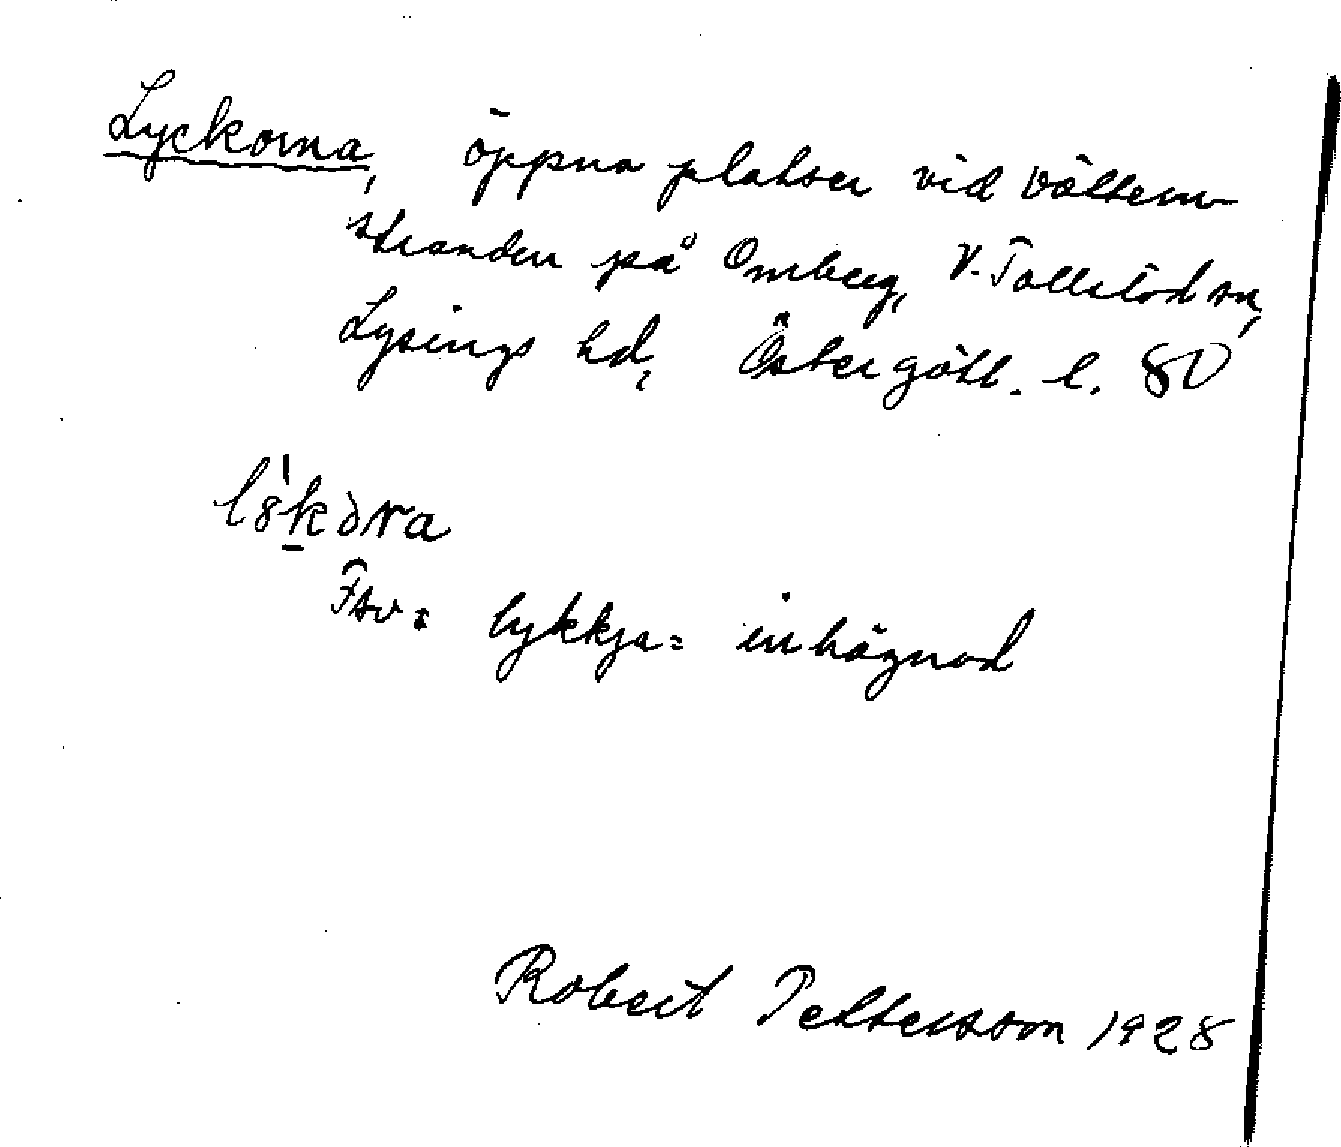 Lyckorna, öppna platser vid Vättern-
stranden på Omberg, V. Tollstad sn,
Lysings hd, Östergötl. l. 80
Fsv. lykkja = inhägnad
Robert Pettersson 1928